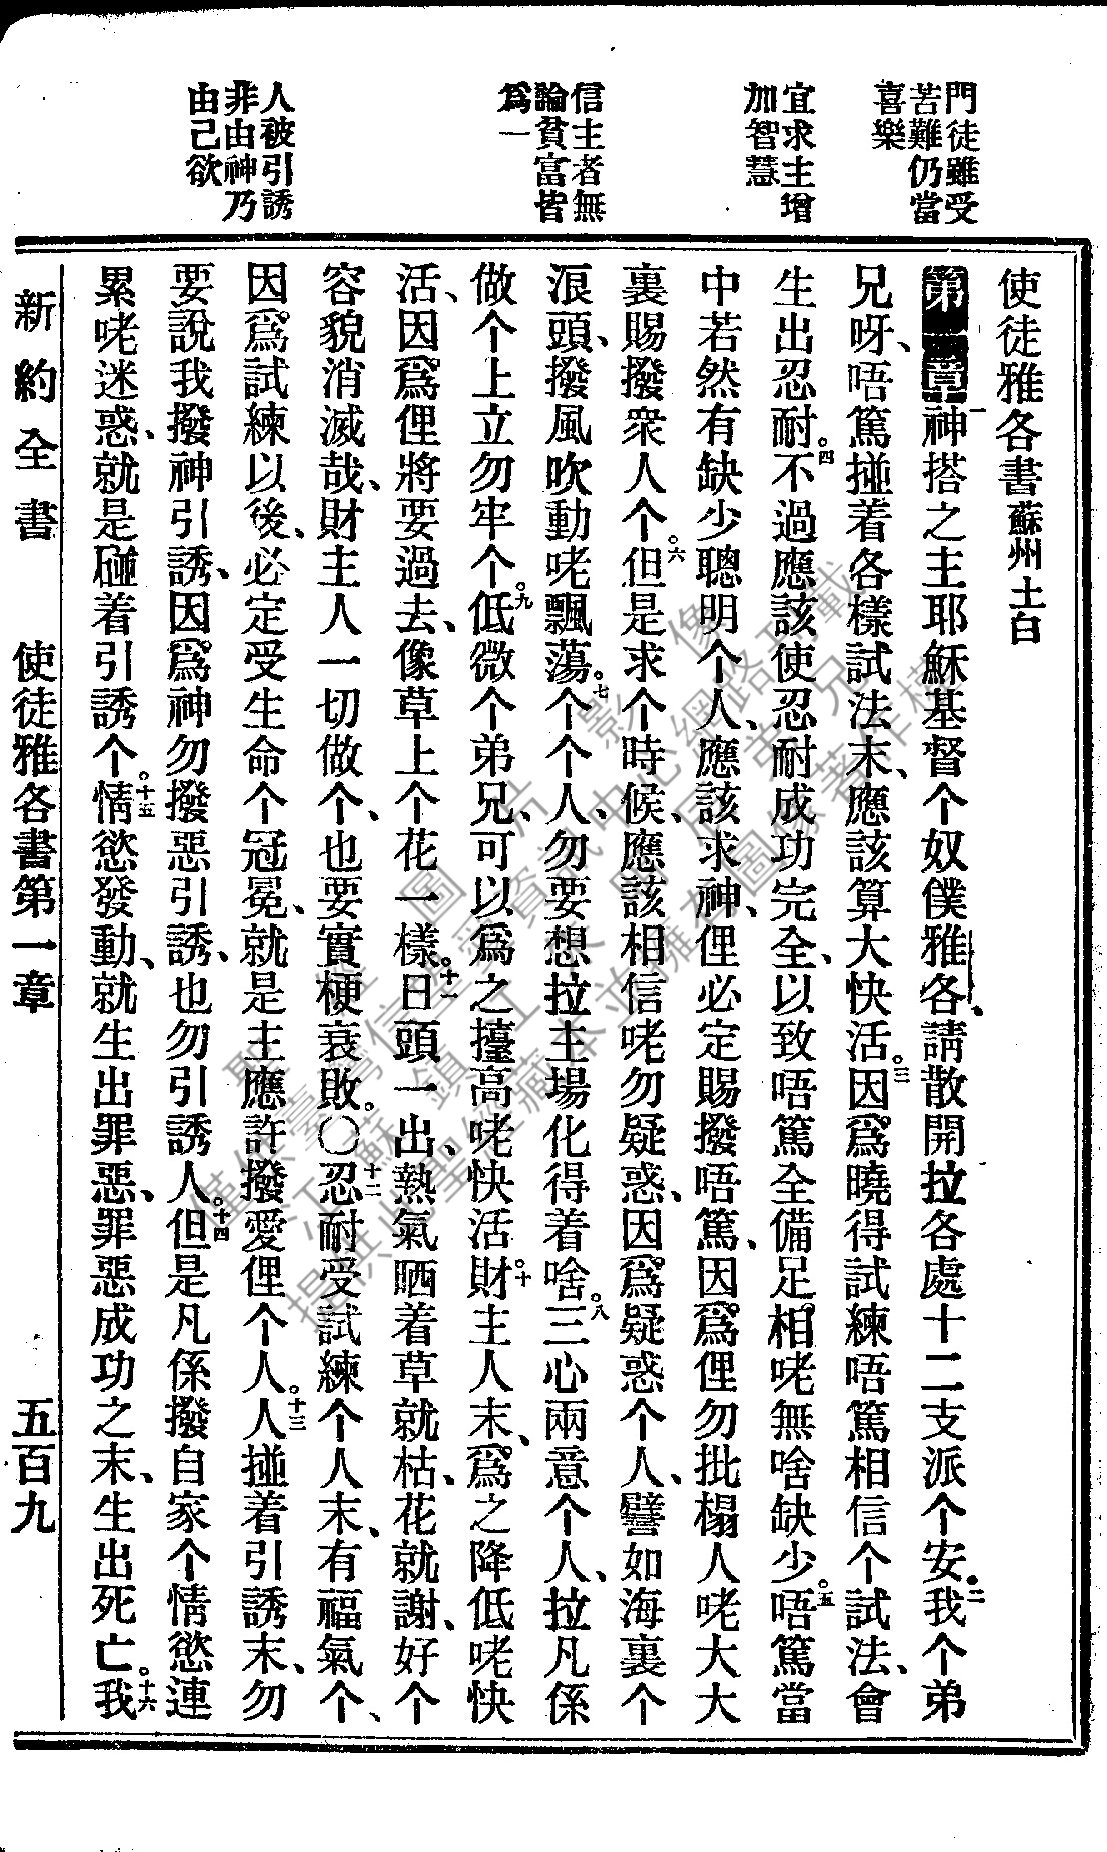 門徒雖受
苦難仍當
喜樂
宜求主增
加智慧
信主者無
論貧富皆
爲一
人被引誘
非由神乃
由己欲
使徒雅各書蘇州土白
第一章一神搭之主耶穌基督个奴僕雅各、請散開拉各處十二支派个安。二我个弟
兄呀、唔篤搕着各樣試法末、應該算大快活。三因爲曉得試練唔篤相信个試法、會
生出忍耐。四不過應該使忍耐成功完全、以致唔篤全備足相咾無啥缺少。五唔篤當
中若然有缺少聰明个人、應該求神、俚必定賜撥唔篤、因爲俚勿批榻人咾大大
裏賜撥衆人个。六但是求个時候、應該相信咾勿疑惑、因爲疑惑个人、譬如海裏个
浪頭、撥風吹動咾飄蕩。七个个人、勿要想拉主場化得着啥。八三心兩意个人、拉凡係
做个上立勿牢个。九低微个弟兄、可以爲之擡高咾快活。十財主人末、爲之降低咾快
活、因爲俚將要過去、像草上个花一樣。十一日頭一出、熱氣晒着草就枯、花就謝、好个
容貌消滅哉、財主人一切做个、也要實梗衰敗。〇十二忍耐受試練个人末、有福氣个、
因爲試練以後、必定受生命个冠冕、就是主應許撥愛俚个人。十三人搕着引誘末、勿
要說我撥神引誘、因爲神勿撥惡引誘、也勿引誘人。十四但是凡係撥自家个情慾連
累咾迷惑、就是碰着引誘个。十五情慾發動、就生出罪惡、罪惡成功之末、生出死亡。十六我
新約全書　使徒雅各書第一章　五百九
聖經圖片影像
僅供臺灣信望愛資訊中心網路刊載
提供此聖經藏本並擁有圖像著作權